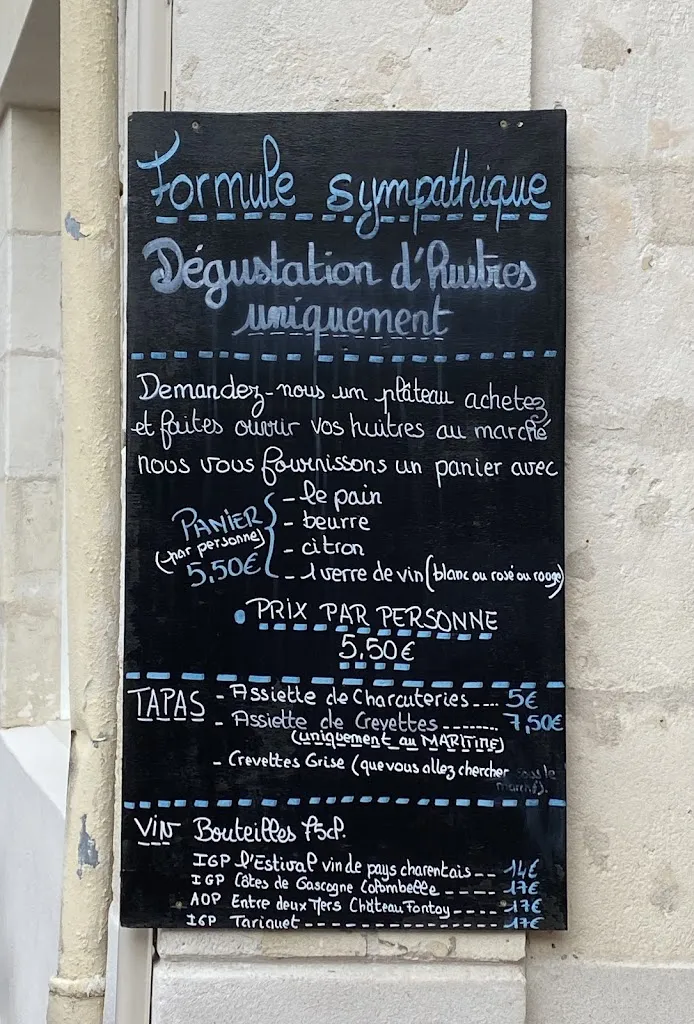 Formule sympathique
Dégustation d'huitres
uniquement
Demandez-nous un plateau achetez
et faites ouvrir vos huitres au marché
nous vous fournissons un panier avec
- le pain
PANIER - beurre
(par personne) - citron
5,50€ - 1 verre de vin (blanc ou rosé ou rouge)
• PRIX PAR PERSONNE
5.50€
TAPAS - Assiette de Charcuteries .... 5€
- Assiette de Crevettes ........ 7,50€
(uniquement au MARITIME)
- Crevettes Grise (que vous allez chercher sous le
marché).
VIN Bouteilles 75cl.
IGP l'Estival vin de pays charentais -- 14€
IGP Côtes de Gascogne Colombelle ----- 17€
AOP Entre deux Mers Château Fontoy ---- 17€
IGP Tariquet --------------- 17€